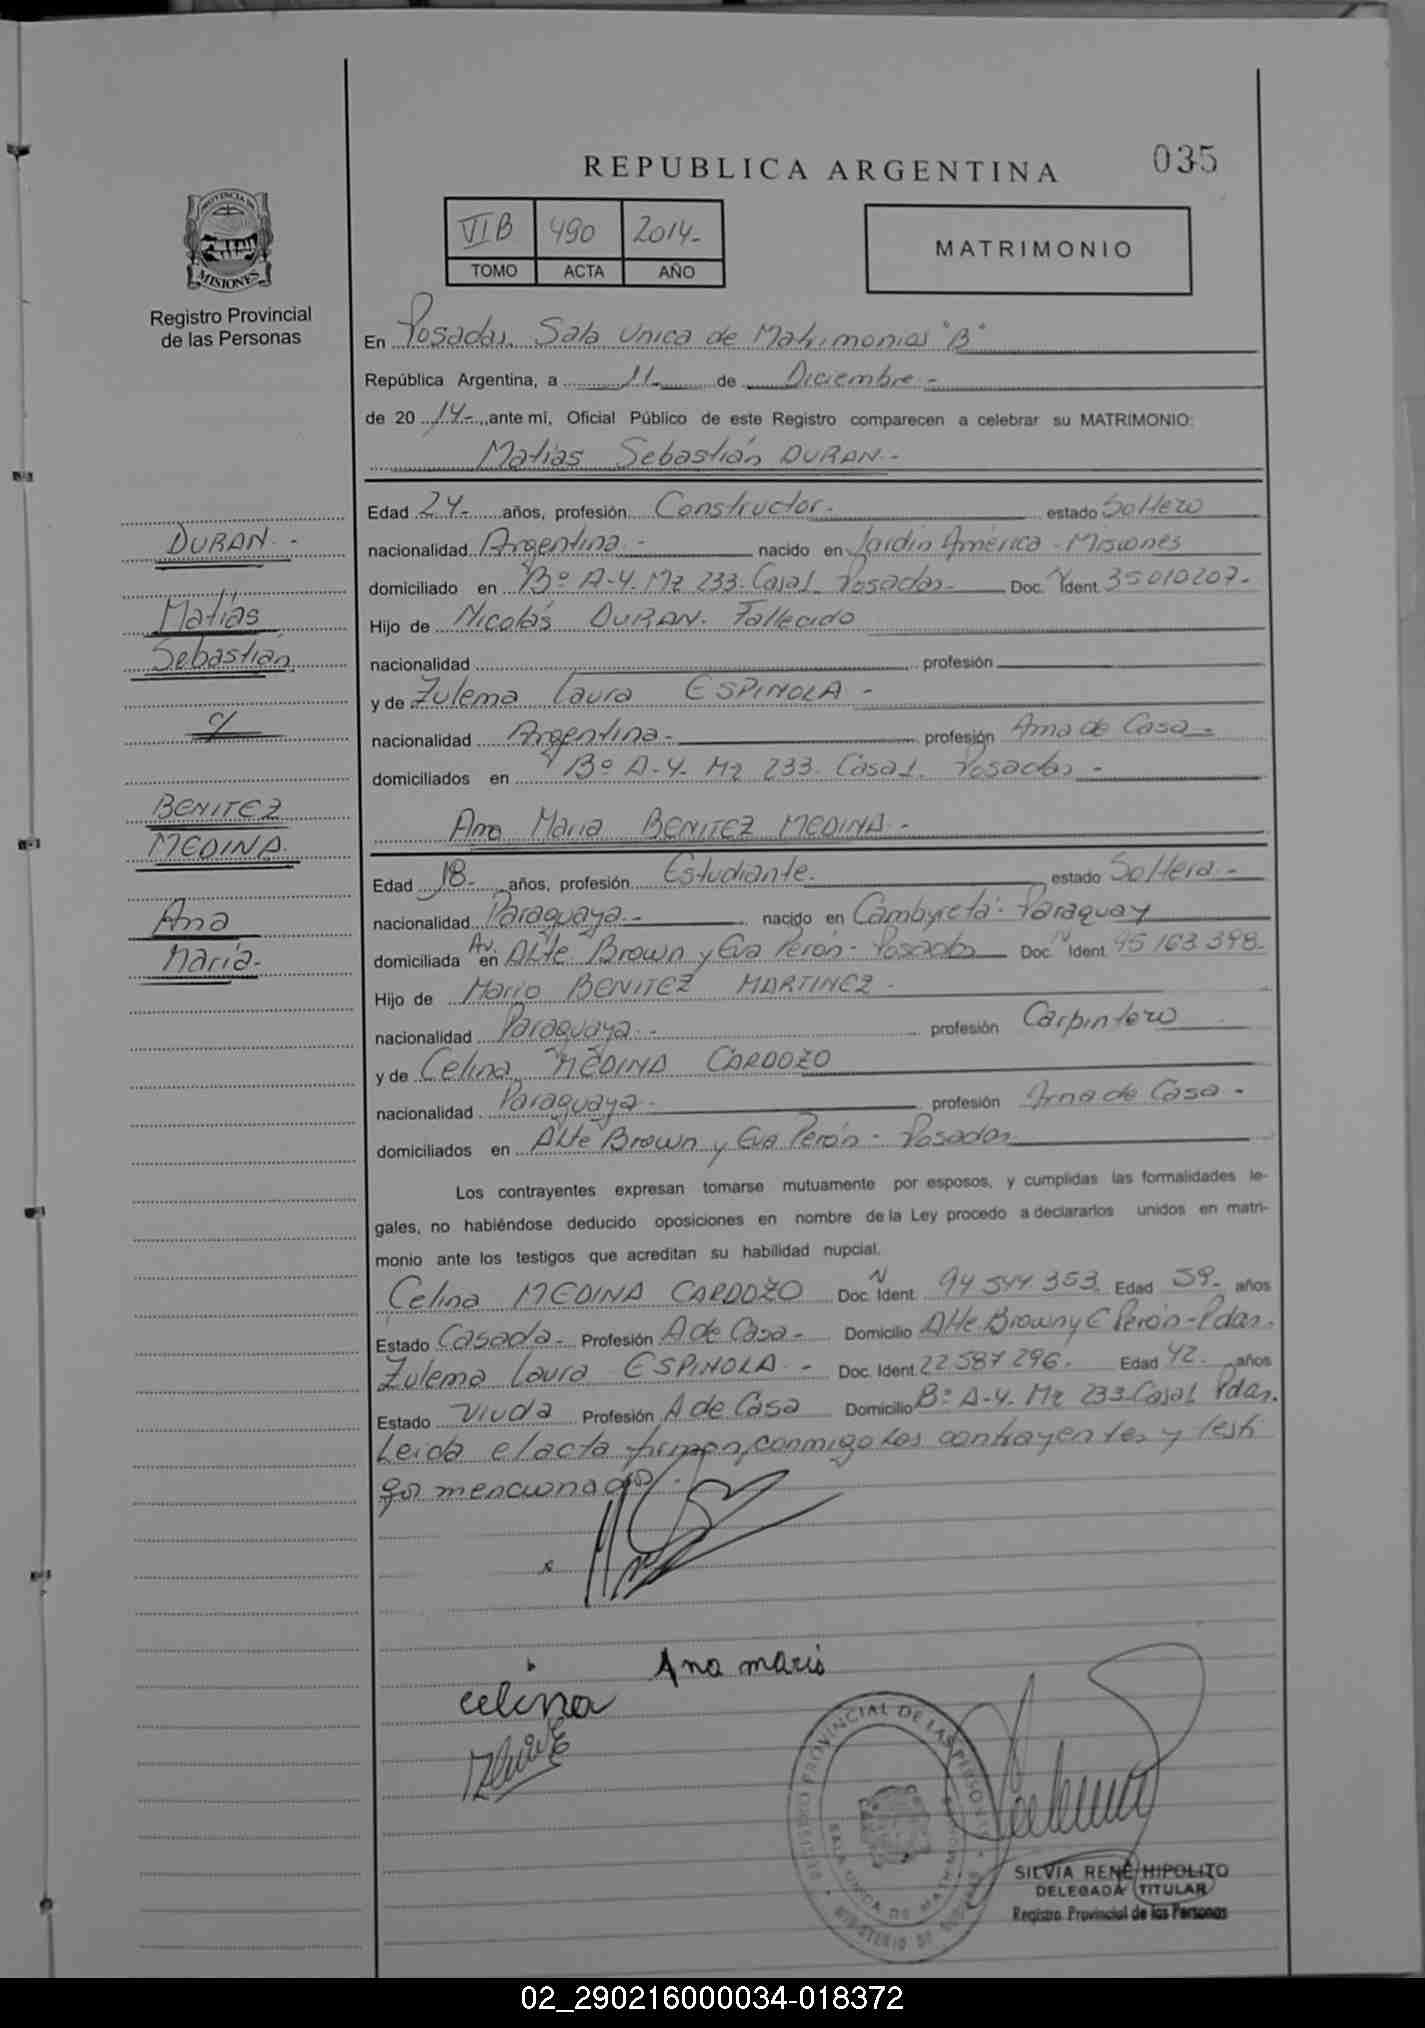 035
REPUBLICA ARGENTINA
VI B 490 2014-
TOMO ACTA AÑO
MATRIMONIO
PROVINCIA DE
MISIONES
Registro Provincial
de las Personas
En Posadas. Sala Unica de Matrimonios "B"
República Argentina, a 11 de Diciembre -
de 20 14- ante mí, Oficial Público de este Registro comparecen a celebrar su MATRIMONIO:
Matías Sebastián DURAN.-
Edad 24- años, profesión Constructor. estado Soltero
nacionalidad Argentina.- nacido en Jardín América - Misiones
domiciliado en Bº A-4. Mz 233. Casa 1. Posadas- Doc. N Ident. 35010207-
Hijo de Nicolás DURAN. Fallecido
nacionalidad profesión
y de Zulema Laura ESPINOLA -
nacionalidad Argentina.- profesión Ama de Casa-
domiciliados en Bº A-4. Mz 233. Casa 1. Posadas -
DURAN.-
Matías
Sebastián
c/
BENITEZ
MEDINA.
Ana
María-
Ana María BENITEZ MEDINA.-
Edad 18- años, profesión Estudiante. estado Soltera.-
nacionalidad Paraguaya.- nacido en Cambyreta- Paraguay
domiciliada en Av. Alte. Brown y Eva Perón- Posadas Doc. N Ident. 95163.398-
Hijo de Mario BENITEZ MARTINEZ.
nacionalidad Paraguaya.- profesión Carpintero
y de Celina MEDINA CARDOZO
nacionalidad Paraguaya- profesión Ama de Casa-
domiciliados en Alte Brown y Eva Perón- Posadas
Los contrayentes expresan tomarse mutuamente por esposos, y cumplidas las formalidades le-
gales, no habiéndose deducido oposiciones en nombre de la Ley procedo a declararlos unidos en matri-
monio ante los testigos que acreditan su habilidad nupcial.
Celina MEDINA CARDOZO Doc. N Ident. 94544.353. Edad 59- años
Estado Casada- Profesión A de Casa- Domicilio Alte Brown y E Perón-Pdas.
Zulema Laura ESPINOLA.- Doc. Ident. 22587296. Edad 42. años
Estado Viuda Profesión A de Casa Domicilio Bº A-4. Mz 233. Casa 1. Pdas.
Leída el acta firman conmigo los contrayentes y testi
gos mencionados.
Ana maria
celina
REGISTRO PROVINCIAL DE LAS PERSONAS
SALA UNICA DE MATRIMONIOS
MINISTERIO DE GOBIERNO
SILVIA RENÉ HIPOLITO
DELEGADA TITULAR
Registro Provincial de las Personas
02_290216000034-018372